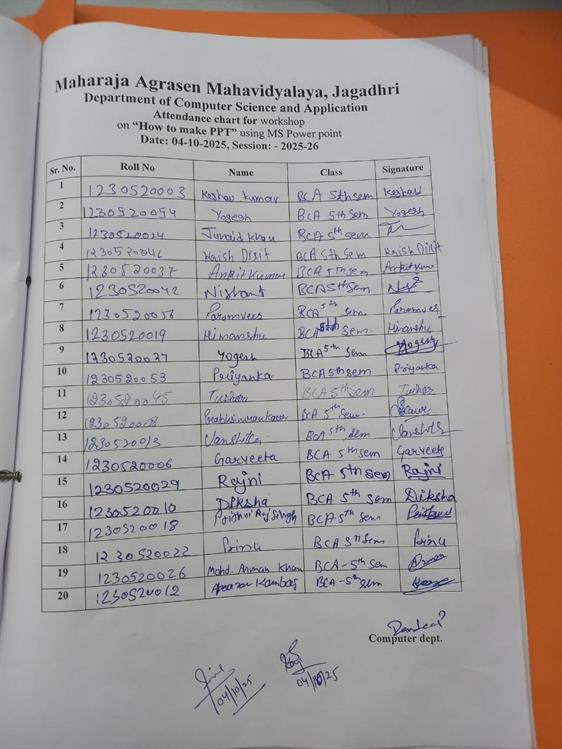 Maharaja Agrasen Mahavidyalaya, Jagadhri
Department of Computer Science and Application
Attendance chart for workshop
on "How to make PPT" using MS Power point
Date: 04-10-2025, Session: - 2025-26
Sr. No. Roll No Name Class Signature
1 1230520003 Keshav Kumar BCA 5th sem Keshav
2 1230520054 Yogesh BCA 5th Sem Yogesh
3 1230520024 Junaid Khan BCA 5th sem
4 1230520046 Kaish Dixit BCA 5th Sem Kaish Dixit
5 1230520037 Ankit Kumar BCA 5th sem Ankit
6 1230520042 Nishant BCA 5th Sem
7 1230520056 Paramveer BCA 5th Sem Paramveer
8 1230520019 Himanshu BCA 5th Sem. Himanshu
9 1230520027 Yogesh BCA 5th Sem Yogesh
10 1230520053 Priyanka BCA 5th sem Priyanka
11 1230520045 Tushar BCA 5th Sem Tushar
12 1230520008 BCA 5th Sem.
13 1230520013 Vanshita BCA 5th Sem
14 1230520006 Garveeta BCA 5th sem Garveeta
15 1230520029 Rajni BCA 5th Sem Rajni
16 1230520010 Diksha BCA 5th sem Diksha
17 1230520018 Raj Singh BCA 5th Sem
18 1230520022 Prince BCA 5th Sem Prince
19 1230520026 Mohd. Arman Khan BCA - 5th Sem
20 1230520012 Kamboj BCA - 5th Sem
Computer dept.
04/10/25 04/10/25